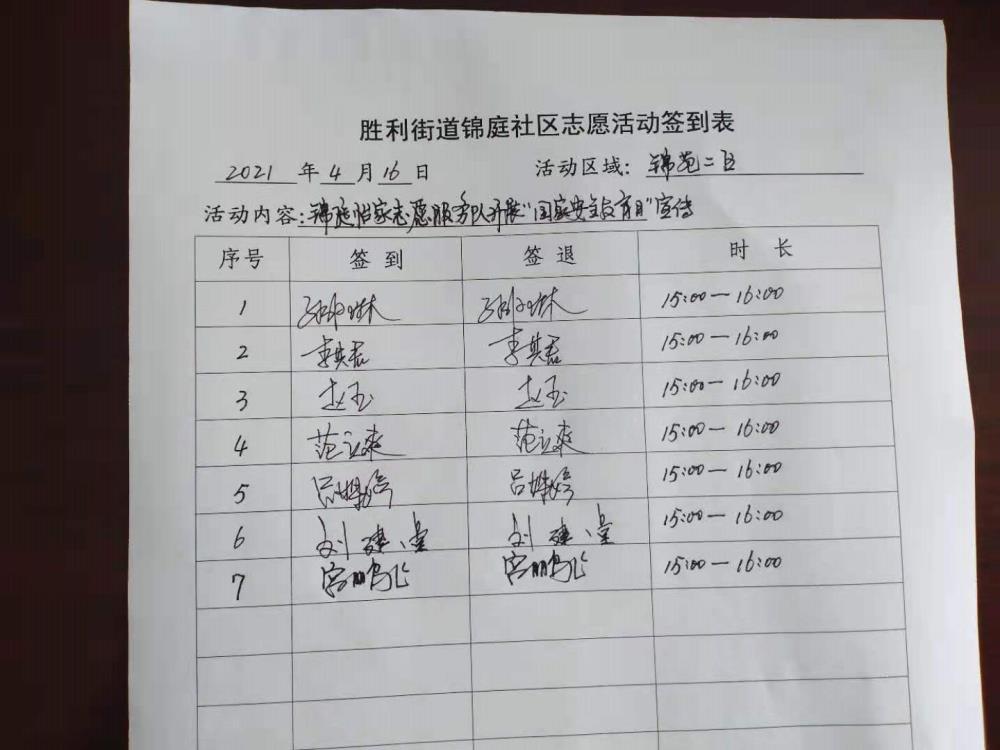 胜利街道锦庭社区志愿活动签到表
2021 年 4 月 16 日 活动区域: 锦苑二区
活动内容: 锦庭怡家志愿服务队开展"国家安全教育日"宣传
序号 签到 签退 时长
1 15:00-16:00
2 李其君 李其君 15:00-16:00
3 赵玉 赵玉 15:00-16:00
4 范立爽 范立爽 15:00-16:00
5 15:00-16:00
6 刘建堂 刘建堂 15:00-16:00
7 宫鹏飞 宫鹏飞 15:00-16:00